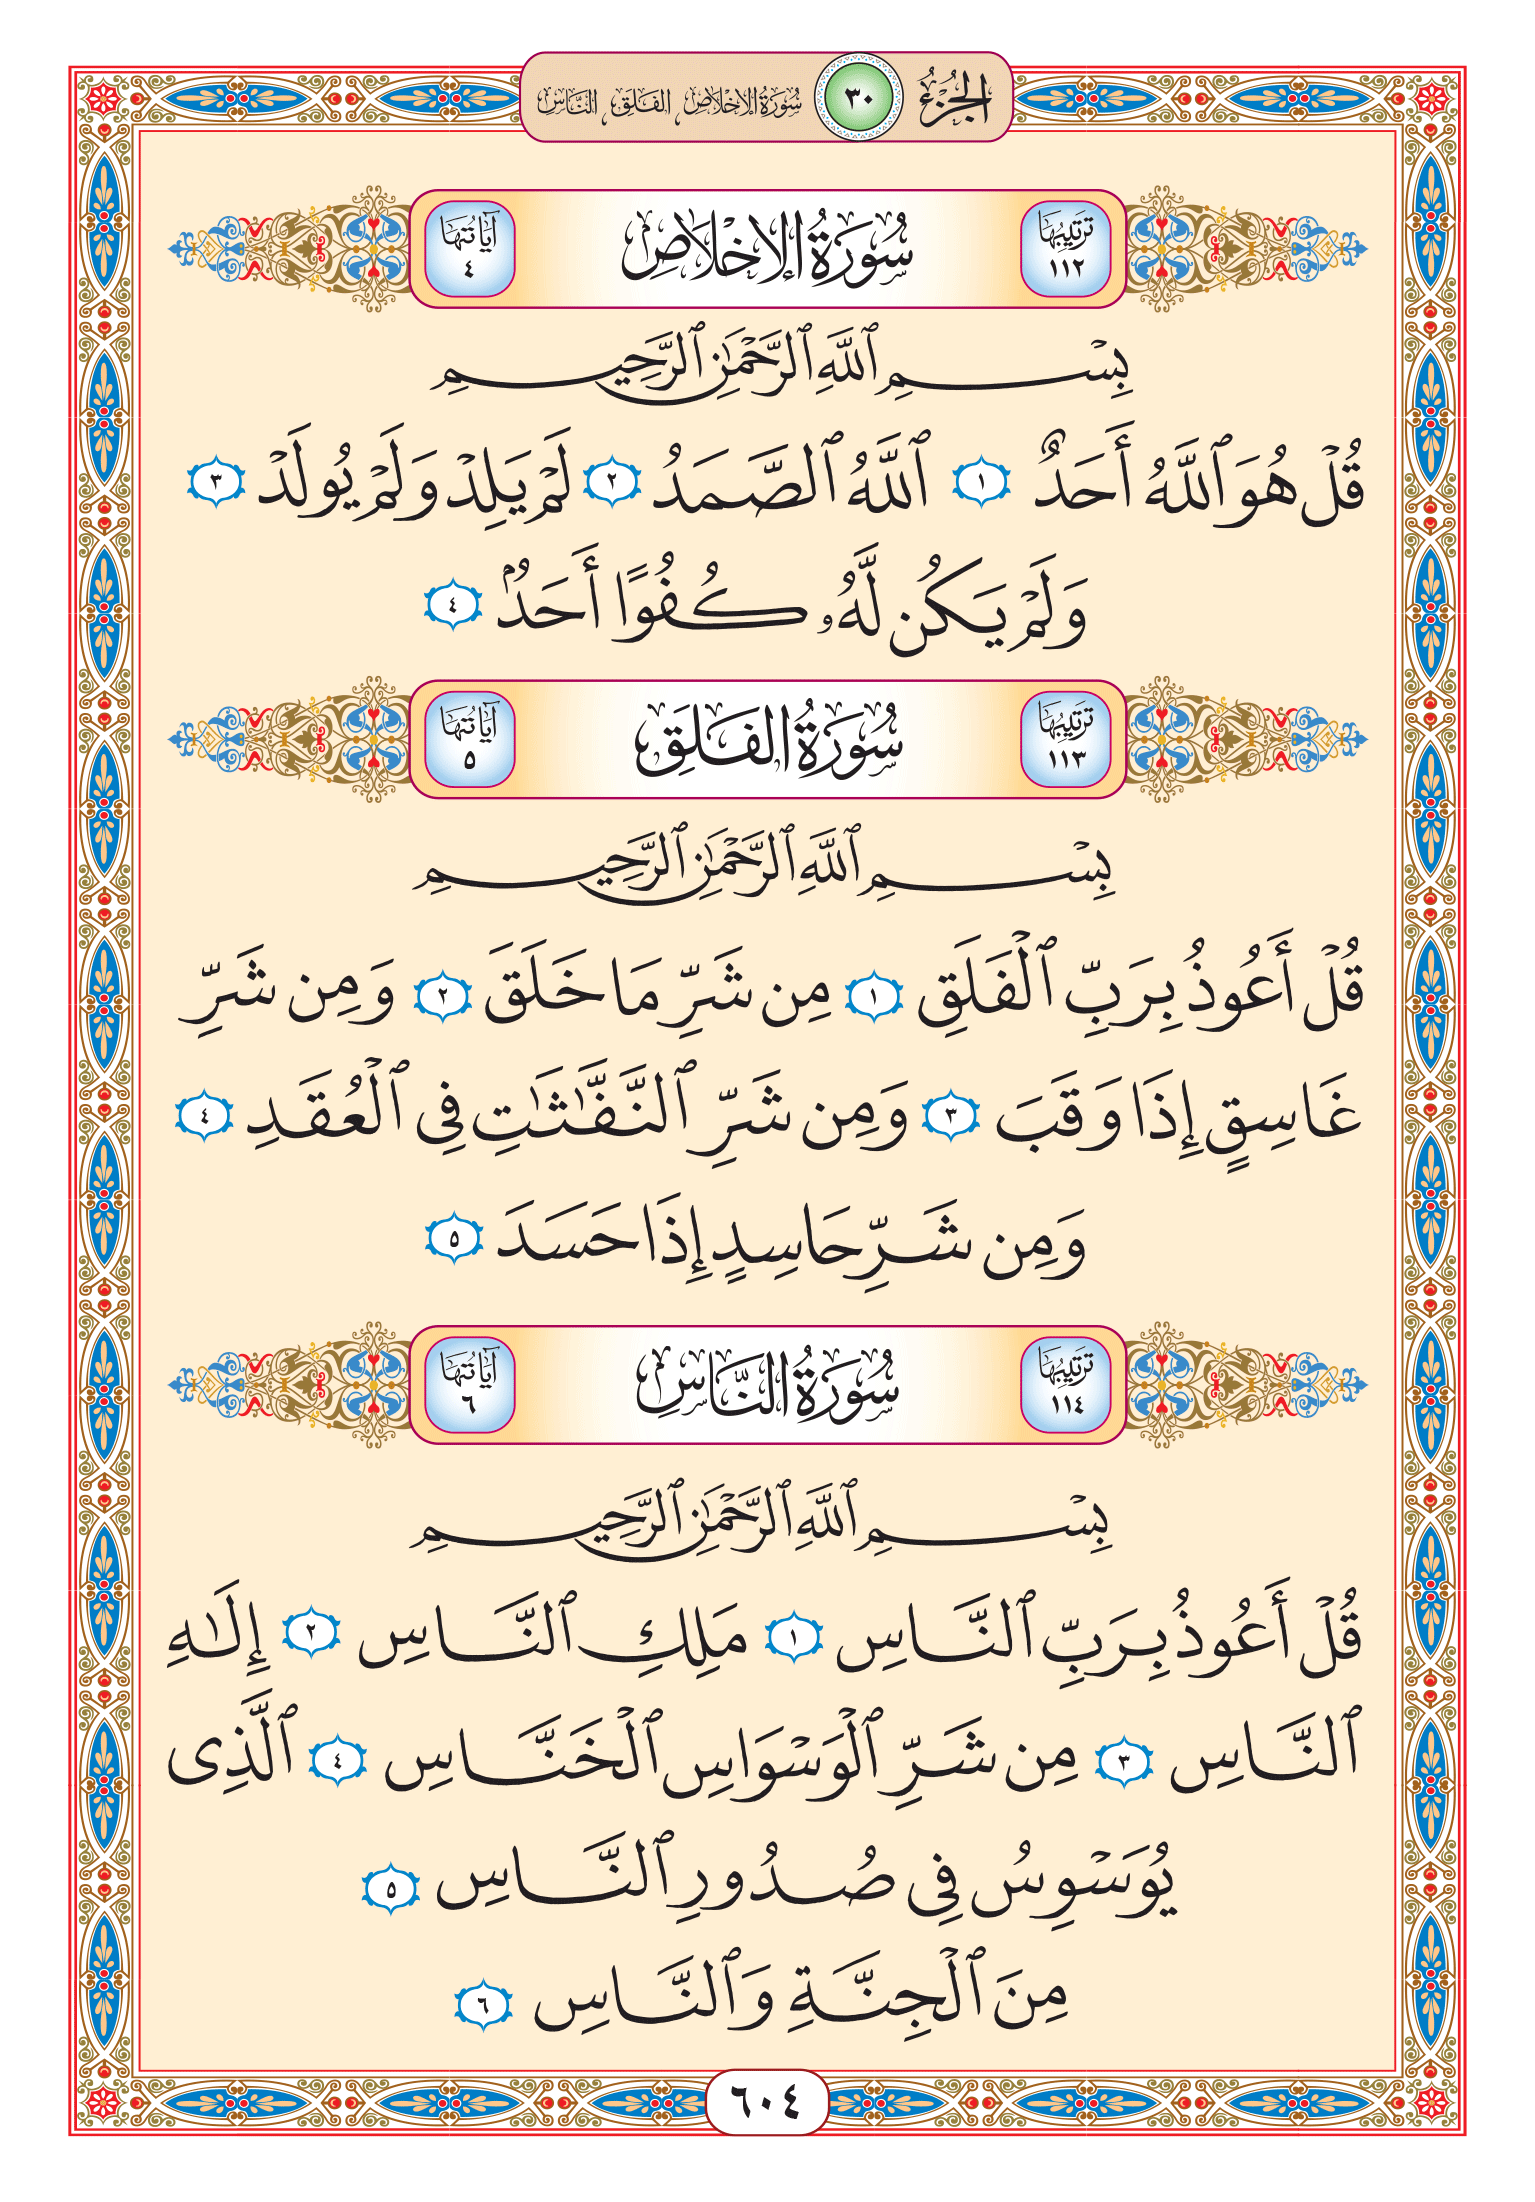 الجزء ٣٠ سورة الإخلاص الفلق الناس
ترتيبها ١١٢ سُورَةُ الإِخْلَاصِ آيَاتُهَا ٤
بِسْمِ ٱللَّهِ ٱلرَّحْمَٰنِ ٱلرَّحِيمِ
قُلْ هُوَ ٱللَّهُ أَحَدٌ ١ ٱللَّهُ ٱلصَّمَدُ ٢ لَمْ يَلِدْ وَلَمْ يُولَدْ ٣
وَلَمْ يَكُن لَّهُۥ كُفُوًا أَحَدٌۢ ٤
ترتيبها ١١٣ سُورَةُ الفَلَقِ آيَاتُهَا ٥
بِسْمِ ٱللَّهِ ٱلرَّحْمَٰنِ ٱلرَّحِيمِ
قُلْ أَعُوذُ بِرَبِّ ٱلْفَلَقِ ١ مِن شَرِّ مَا خَلَقَ ٢ وَمِن شَرِّ
غَاسِقٍ إِذَا وَقَبَ ٣ وَمِن شَرِّ ٱلنَّفَّٰثَٰتِ فِى ٱلْعُقَدِ ٤
وَمِن شَرِّ حَاسِدٍ إِذَا حَسَدَ ٥
ترتيبها ١١٤ سُورَةُ النَّاسِ آيَاتُهَا ٦
بِسْمِ ٱللَّهِ ٱلرَّحْمَٰنِ ٱلرَّحِيمِ
قُلْ أَعُوذُ بِرَبِّ ٱلنَّاسِ ١ مَلِكِ ٱلنَّاسِ ٢ إِلَٰهِ
ٱلنَّاسِ ٣ مِن شَرِّ ٱلْوَسْوَاسِ ٱلْخَنَّاسِ ٤ ٱلَّذِى
يُوَسْوِسُ فِى صُدُورِ ٱلنَّاسِ ٥
مِنَ ٱلْجِنَّةِ وَٱلنَّاسِ ٦
٦٠٤